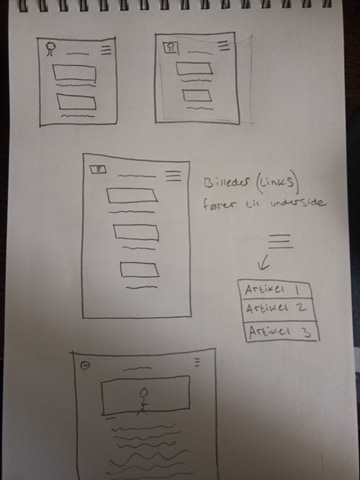 Billeder (Links)
fører til underside
Artikel 1
Artikel 2
Artikel 3